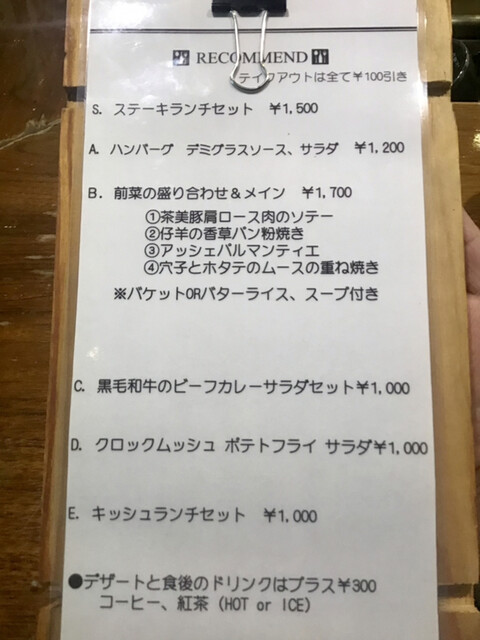 RECOMMEND
テイクアウトは全て¥100引き
S. ステーキランチセット ¥1,500
A. ハンバーグ デミグラスソース、サラダ ¥1,200
B. 前菜の盛り合わせ&メイン ¥1,700
①茶美豚肩ロース肉のソテー
②仔羊の香草パン粉焼き
③アッシェパルマンティエ
④穴子とホタテのムースの重ね焼き
※バケットORバターライス、スープ付き
C. 黒毛和牛のビーフカレーサラダセット¥1,000
D. クロックムッシュ ポテトフライ サラダ¥1,000
E. キッシュランチセット ¥1,000
●デザートと食後のドリンクはプラス¥300
コーヒー、紅茶（HOT or ICE）